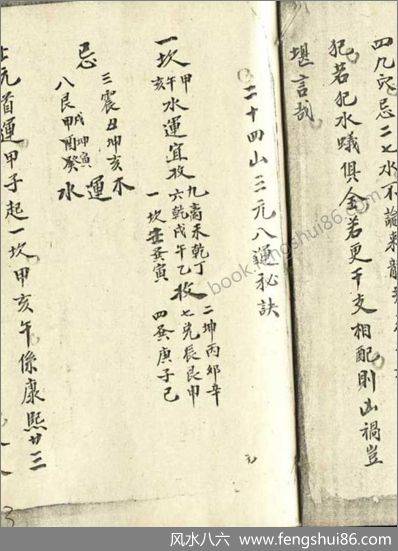 四九穴忌二七水不論來龍
犯若犯水蟻俱全若更干支相配則凶禍豈
堪言哉
二十四山三元八運秘訣
九离禾乾丁
二坤丙卯辛
一坎
甲
午
亥
水運宜放
六乾戌午乙
放
七兌辰艮申
一坎壬巽寅
四巽庚子巳
忌
三震丑坤亥木
運
八艮甲酉癸
水
戌坤寅
上元首運甲子起一坎甲亥午係康熙廿三
元
book.fengshui86.com
风水八六 - www.fengshui86.com